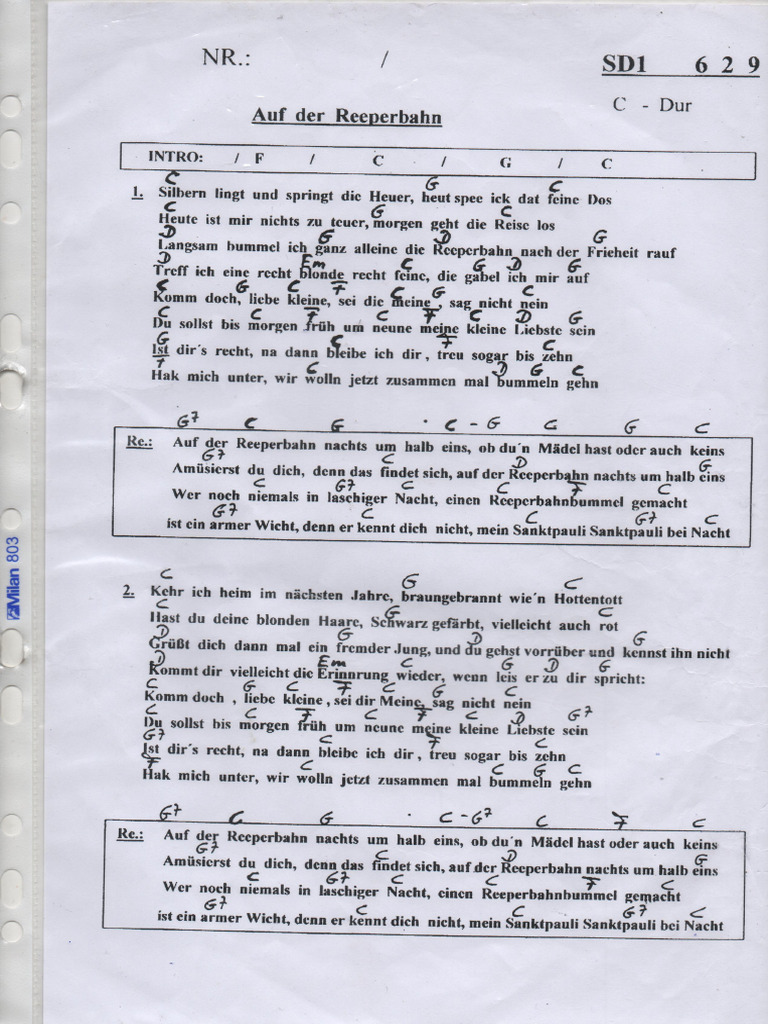 NR.: /
SD1 6 2 9
C - Dur
Auf der Reeperbahn
INTRO: / F / C / G / C
C G C
1. Silbern lingt und springt die Heuer, heut spee ick dat feine Dos
C G C
Heute ist mir nichts zu teuer, morgen geht die Reise los
D G D G
Langsam bummel ich ganz alleine die Reeperbahn nach der Frieheit rauf
D Em C G D G
Treff ich eine recht blonde recht feine, die gabel ich mir auf
C G C F C G C
Komm doch, liebe kleine, sei die meine , sag nicht nein
C C F C F C D G
Du sollst bis morgen früh um neune meine kleine Liebste sein
G C F C
Ist dir´s recht, na dann bleibe ich dir , treu sogar bis zehn
F C D G C
Hak mich unter, wir wolln jetzt zusammen mal bummeln gehn
G7 C G C - G G G C
Re.: Auf der Reeperbahn nachts um halb eins, ob du´n Mädel hast oder auch keins
G7 C D G
Amüsierst du dich, denn das findet sich, auf der Reeperbahn nachts um halb eins
C G7 C C F C
Wer noch niemals in laschiger Nacht, einen Reeperbahnbummel gemacht
G7 C C G7 C
ist ein armer Wicht, denn er kennt dich nicht, mein Sanktpauli Sanktpauli bei Nacht
C G C
2. Kehr ich heim im nächsten Jahre, braungebrannt wie´n Hottentott
C G C
Hast du deine blonden Haare, Schwarz gefärbt, vielleicht auch rot
D G D G
Grüßt dich dann mal ein fremder Jung, und du gehst vorrüber und kennst ihn nicht
D Em C G D G
Kommt dir vielleicht die Erinnrung wieder, wenn leis er zu dir spricht:
C G C F C G C
Komm doch , liebe kleine , sei dir Meine, sag nicht nein
C C F C F C D G7
Du sollst bis morgen früh um neune meine kleine Liebste sein
G7 C F C
Ist dir´s recht, na dann bleibe ich dir , treu sogar bis zehn
F C C G C
Hak mich unter, wir wolln jetzt zusammen mal bummeln gehn
G7 C G C - G7 C F C
Re.: Auf der Reeperbahn nachts um halb eins, ob du´n Mädel hast oder auch keins
G7 C D G
Amüsierst du dich, denn das findet sich, auf der Reeperbahn nachts um halb eins
C G7 C C F C
Wer noch niemals in laschiger Nacht, einen Reeperbahnbummel gemacht
G7 C C G7 C
ist ein armer Wicht, denn er kennt dich nicht, mein Sanktpauli Sanktpauli bei Nacht
Milan 803